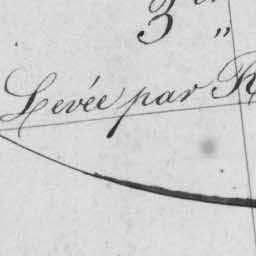 3
„
Levée par R